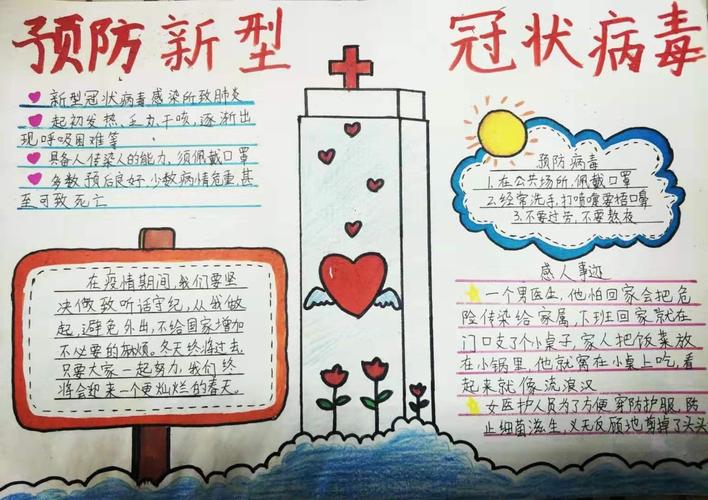 预防新型 冠状病毒
新型冠状病毒感染所致肺炎
起初发热、乏力、干咳,逐渐出
现呼吸困难等
具备人传人的能力,须佩戴口罩
多数预后良好,少数病情危重,甚
至可致死亡
在疫情期间,我们要坚
决做致听话守纪,从我做
起,避免外出,不给国家增加
不必要的麻烦。冬天终将过去.
只要大家一起努力,我们终
将会迎来一个更灿烂的春天.
预防病毒
1.在公共场所,佩戴口罩
2.经常洗手,打喷嚏要捂口鼻
3.不要过劳,不要熬夜
感人事迹
一个男医生,他怕回家会把危
险传染给家属,下班回家就在
门口支了个小桌子,家人把饭菜放
在小锅里,他就窝在小桌上吃,看
起来就像流浪汉
女医护人员为了方便穿防护服,防
止细菌滋生,义无反顾地剪掉了头